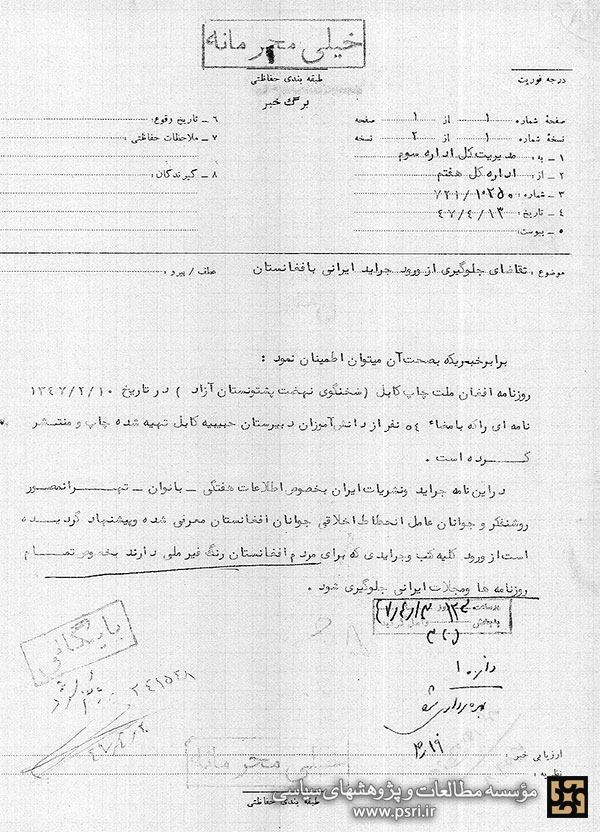 خیلی محرمانه
طبقه بندی حفاظتی
برگ خبر
درجه فوریت
صفحه شماره : ۱ از : ۱ صفحه
نسخه شماره : ۱ از : ۲ نسخه
۱ ـ به : مدیریت کل اداره سوم
۲ ـ از : اداره کل هفتم
۳ ـ شماره : ۷۲۱/۱۰۲۵۰
۴ ـ تاریخ : ۴۷/۴/۱۳
۵ ـ پیوست :
۶ ـ تاریخ وقوع :
۷ ـ ملاحظات حفاظتی :
۸ ـ گیرندگان :
موضوع : تقاضای جلوگیری از ورود جراید ایرانی بافغانستان
عطف / پیرو :
برابر خبریکه بصحت آن میتوان اطمینان نمود :
روزنامه افغان ملت چاپ کابل (سخنگوی نهضت پشتونستان آزاد ) در تاریخ ۱۳۴۷/۲/۱۰
نامه ای را که بامضاء ۵۴ نفر از دانش آموزان دبیرستان حبیبیه کابل تهیه شده چاپ و منتشر
کرده است .
در این نامه جراید ونشریات ایران بخصوص اطلاعات هفتگی ـ بانوان ـ تهرانمصور
روشنفکر و جوانان عامل انحطاط اخلاقی جوانان افغانستان معرفی شده وپیشنهاد گردیده
است از ورود کلیه کتب وجرایدی که برای مردم افغانستان رنگ غیر ملی دارند بخصوص تمام
روزنامه ها ومجلات ایرانی جلوگیری شود .
بایگانی
۲۴۱۵۲۸
بهره برداری شد
۴/۱۹
ارزیابی خبر :
نظریه :
خیلی محرمانه
طبقه بندی حفاظتی
مؤسسه مطالعات و پژوهشهای سیاسی
www.psri.ir